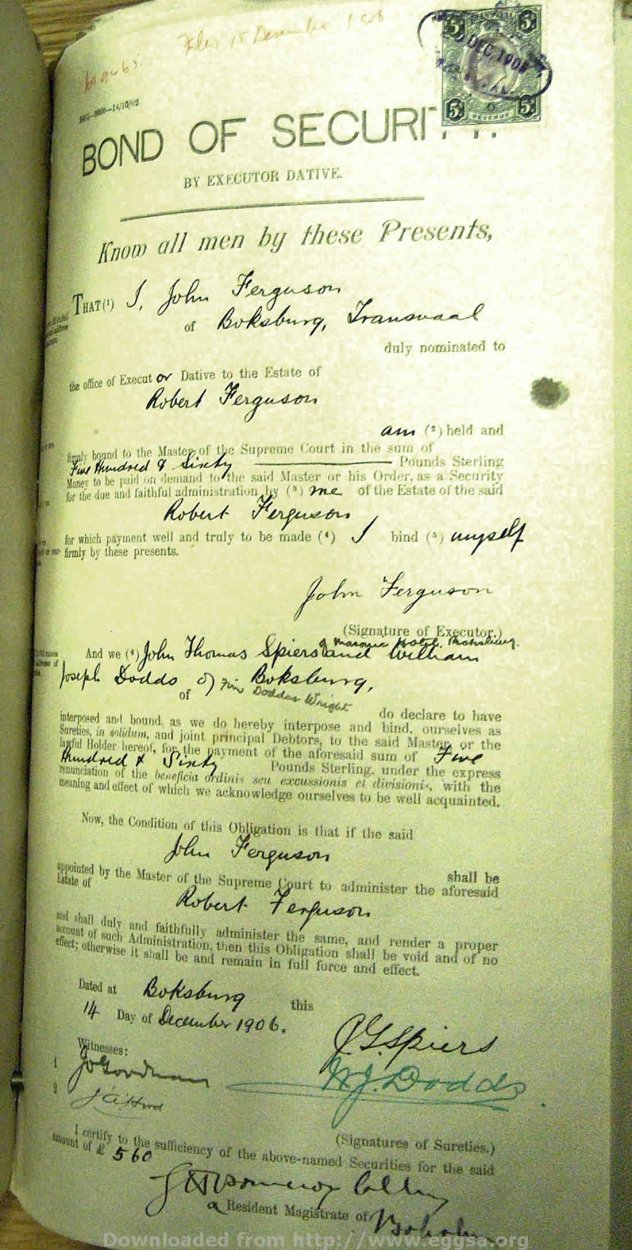 Filed 15 December 1906
5/-
5/-
DEC 1906
5/-
5/-
REVENUE
BOND OF SECURIT
BY EXECUTOR DATIVE.
Know all men by these Presents,
THAT (1) I, John Ferguson
of Boksburg, Transvaal
duly nominated to
the office of Execut or Dative to the Estate of
Robert Ferguson
am (2) held and
firmly bound to the Master of the Supreme Court in the sum of
Five Hundred & Sixty Pounds Sterling
Money to be paid on demand to the said Master or his Order, as a Security
for the due and faithful administration by (3) me of the Estate of the said
Robert Ferguson
for which payment well and truly to be made (4) I bind (5) myself
firmly by these presents.
John Ferguson
(Signature of Executor.)
of Masonic Hotel, Boksburg.
And we (6) John Thomas Spiers and William
Joseph Dodds of Boksburg,
of Dodds Wright
do declare to have
interposed and bound, as we do hereby interpose and bind, ourselves as
Sureties, in solidum, and joint principal Debtors, to the said Master, or the
lawful Holder hereof, for the payment of the aforesaid sum of Five
Hundred & Sixty Pounds Sterling, under the express
renunciation of the beneficia ordinis seu excussionis et divisionis, with the
meaning and effect of which we acknowledge ourselves to be well acquainted.
Now, the Condition of this Obligation is that if the said
John Ferguson
shall be
appointed by the Master of the Supreme Court to administer the aforesaid
Estate of
Robert Ferguson
and shall duly and faithfully administer the same, and render a proper
account of such Administration, then this Obligation shall be void and of no
effect; otherwise it shall be and remain in full force and effect.
Dated at Boksburg this
14 Day of December 1906.
Witnesses:
J. T. Spiers
1
W. J. Dodds
2
(Signatures of Sureties.)
I certify to the sufficiency of the above-named Securities for the said
amount of £ 560
a Resident Magistrate of
Downloaded from http://www.eggsa.org